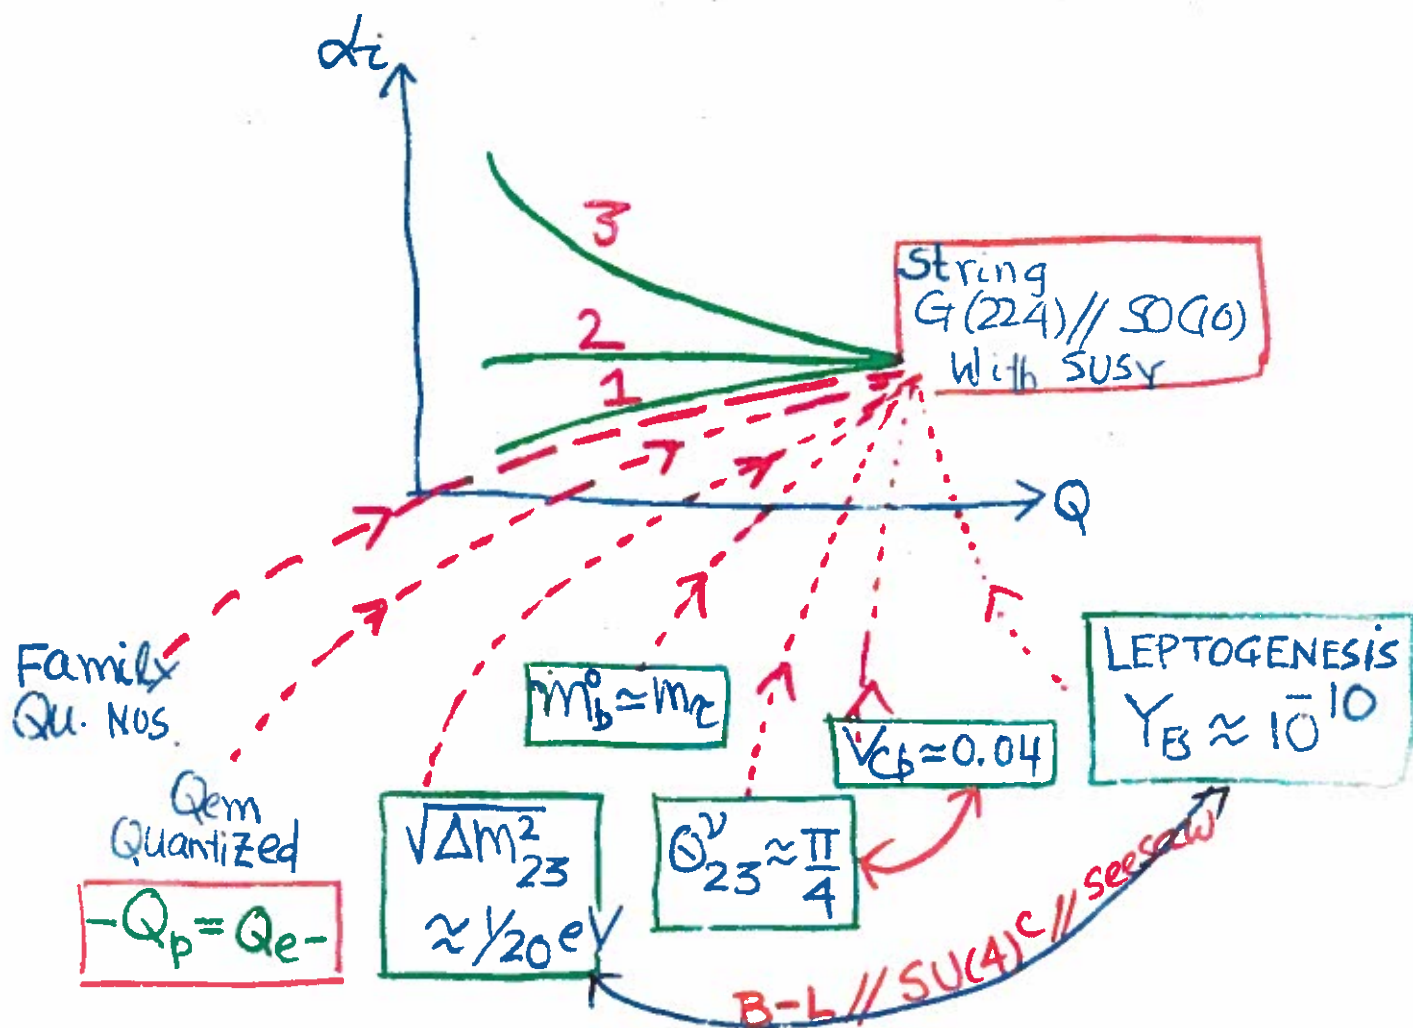 αi
3
2
1
String
G(224)//SO(10)
With SUSY
Q
Family
QU. NOS.
Qem
Quantized
-Qp = Qe-
√Δm²23
≈ 1/20 eV
m°b ≃ mτ
Θν23 ≈ π/4
Vcb ≃ 0.04
LEPTOGENESIS
YB ≈ 10^-10
B-L // SU(4)^c // seesaw